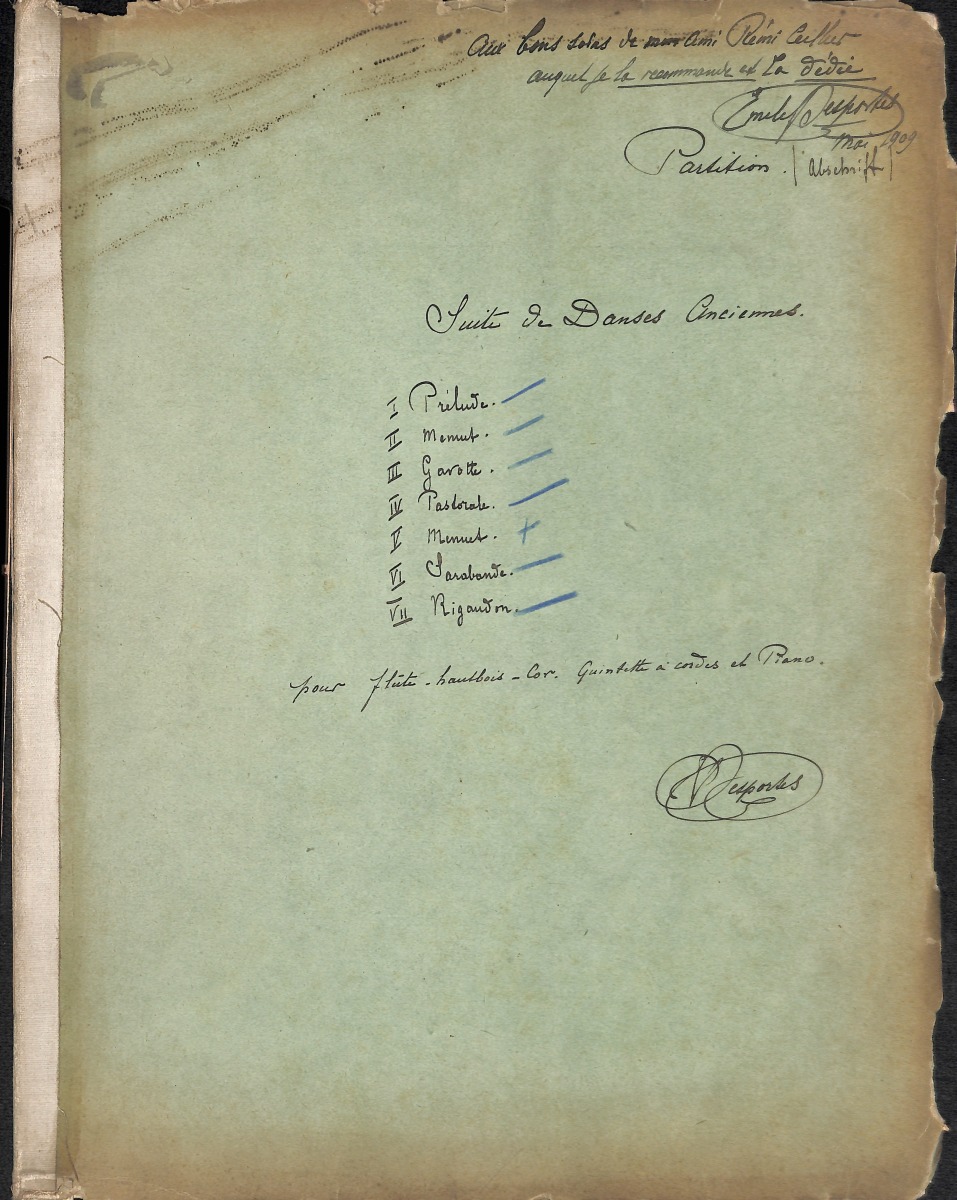 Aux bons soins de mon Ami Rémi
auquel je la recommande et La dédie
Emile Desportes
3 mai 1909
Partition. (Abschrift)
Suite de Danses Anciennes.
I Prélude.
II Menuet.
III Gavotte.
IV Pastorale.
V Menuet.
VI Sarabande.
VII Rigaudon.
pour flûte - hautbois - Cor. Quintette à cordes et Piano.
Desportes